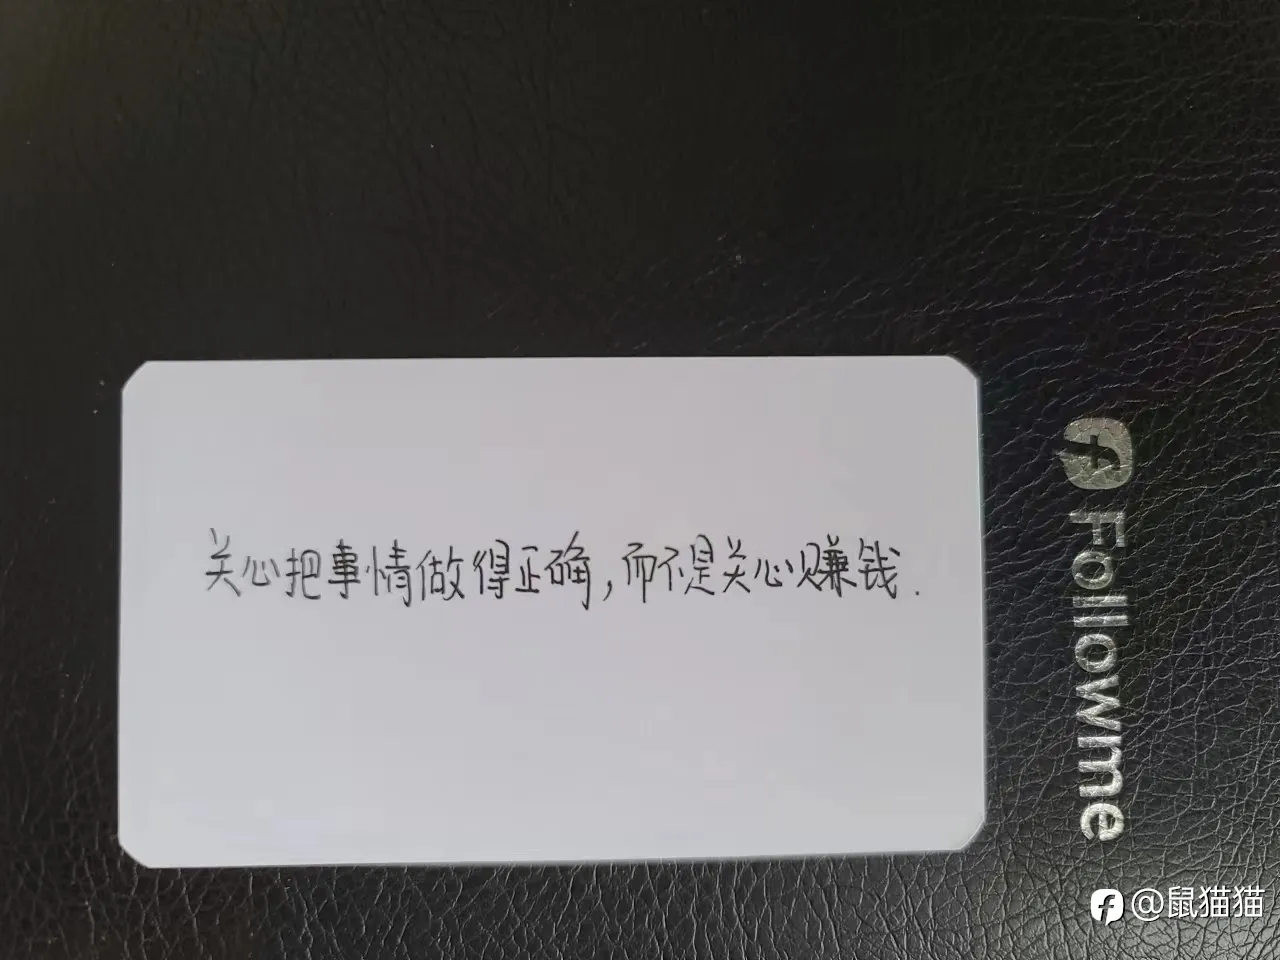 关心把事情做得正确,而不是关心赚钱.
Followme
@鼠猫猫